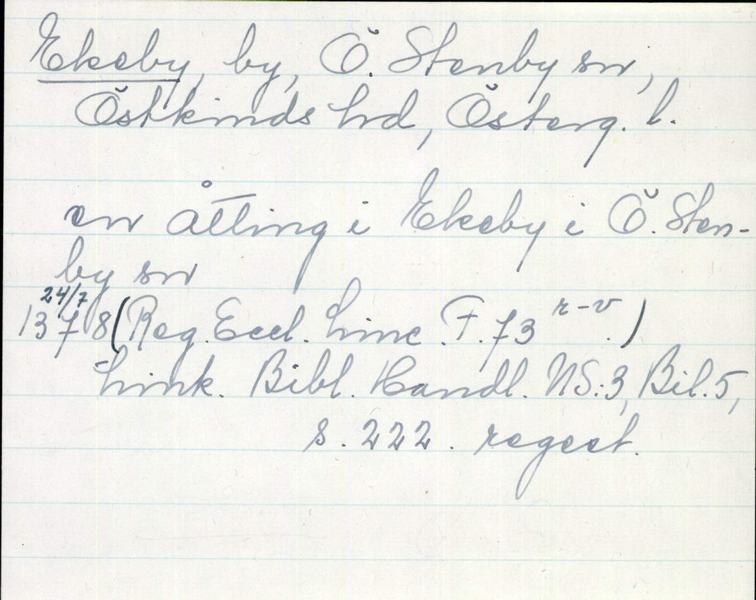 Ekeby, by, Ö. Stenby sn,
Östkinds hd, Österg. l.
en åtting i Ekeby i Ö. Sten-
by sn
24/7
1378 (Reg. Eccl. Linc. F. 73 r-v.)
Link. Bibl. Handl. NS:3, Bil. 5,
s. 222. regest.